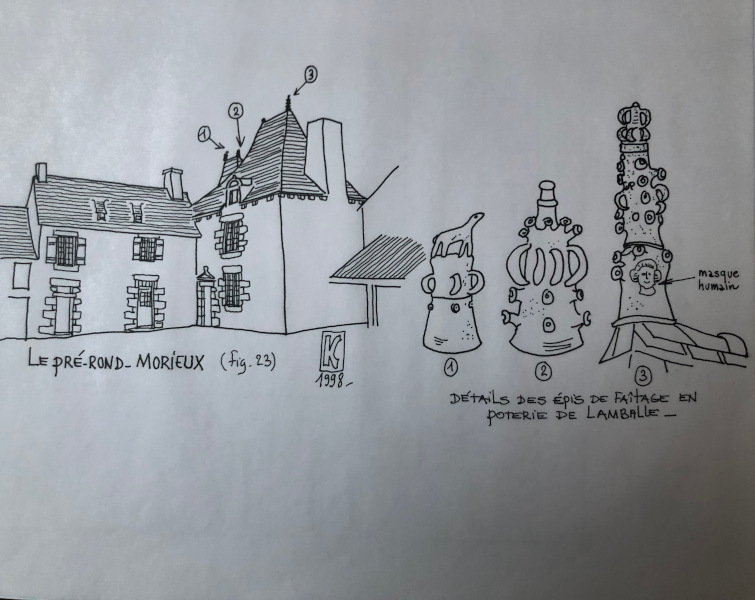 3
2
1
LE PRÉ-ROND_ MORIEUX (fig. 23)
K
1998_
masque
humain
1
2
3
DÉTAILS DES ÉPIS DE FAÎTAGE EN
POTERIE DE LAMBALLE _